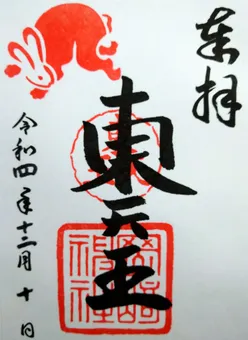 奉拝
東天王
令和四年十二月十日